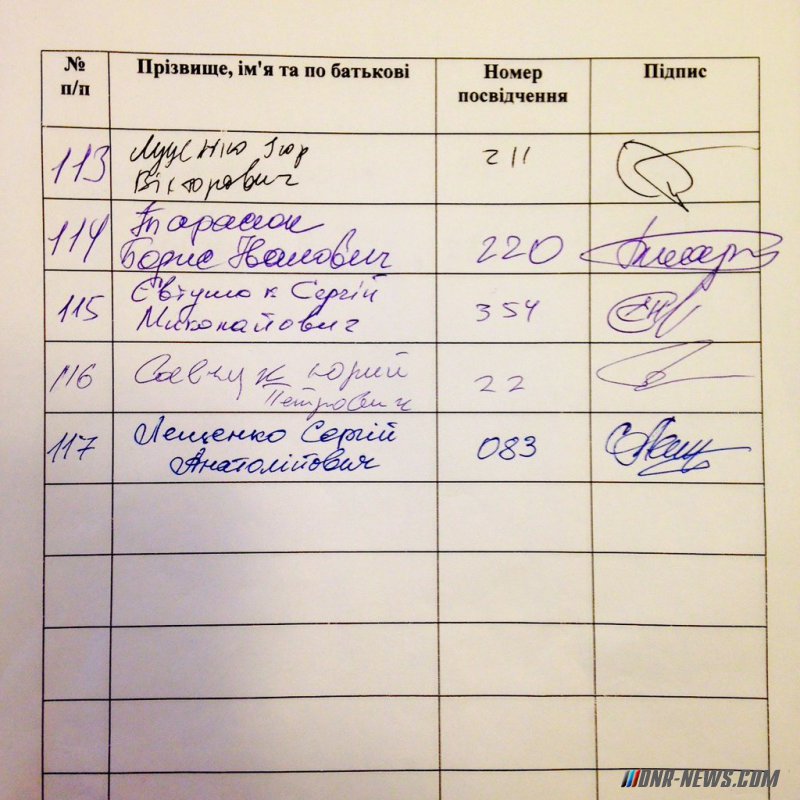 № п/п Прізвище, ім'я та по батькові Номер посвідчення Підпис
113 Луценко Ігор Вікторович 211
114 Тарасюк Борис Іванович 220
115 Євтушок Сергій Миколайович 354
116 Савчук Юрій Петрович 22
117 Лещенко Сергій Анатолійович 083
DNR-NEWS.COM